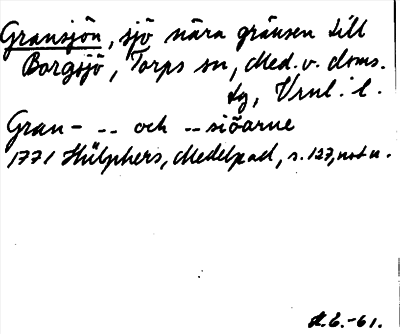 Gransjön, sjö nära gränsen till
Borgsjö, Torps sn, Med. v. doms.
sg, Vrnl. l.
Gran- -- och --siöarne
1771 Hülphers, Medelpad, s. 127, not u.
H.E.-61.